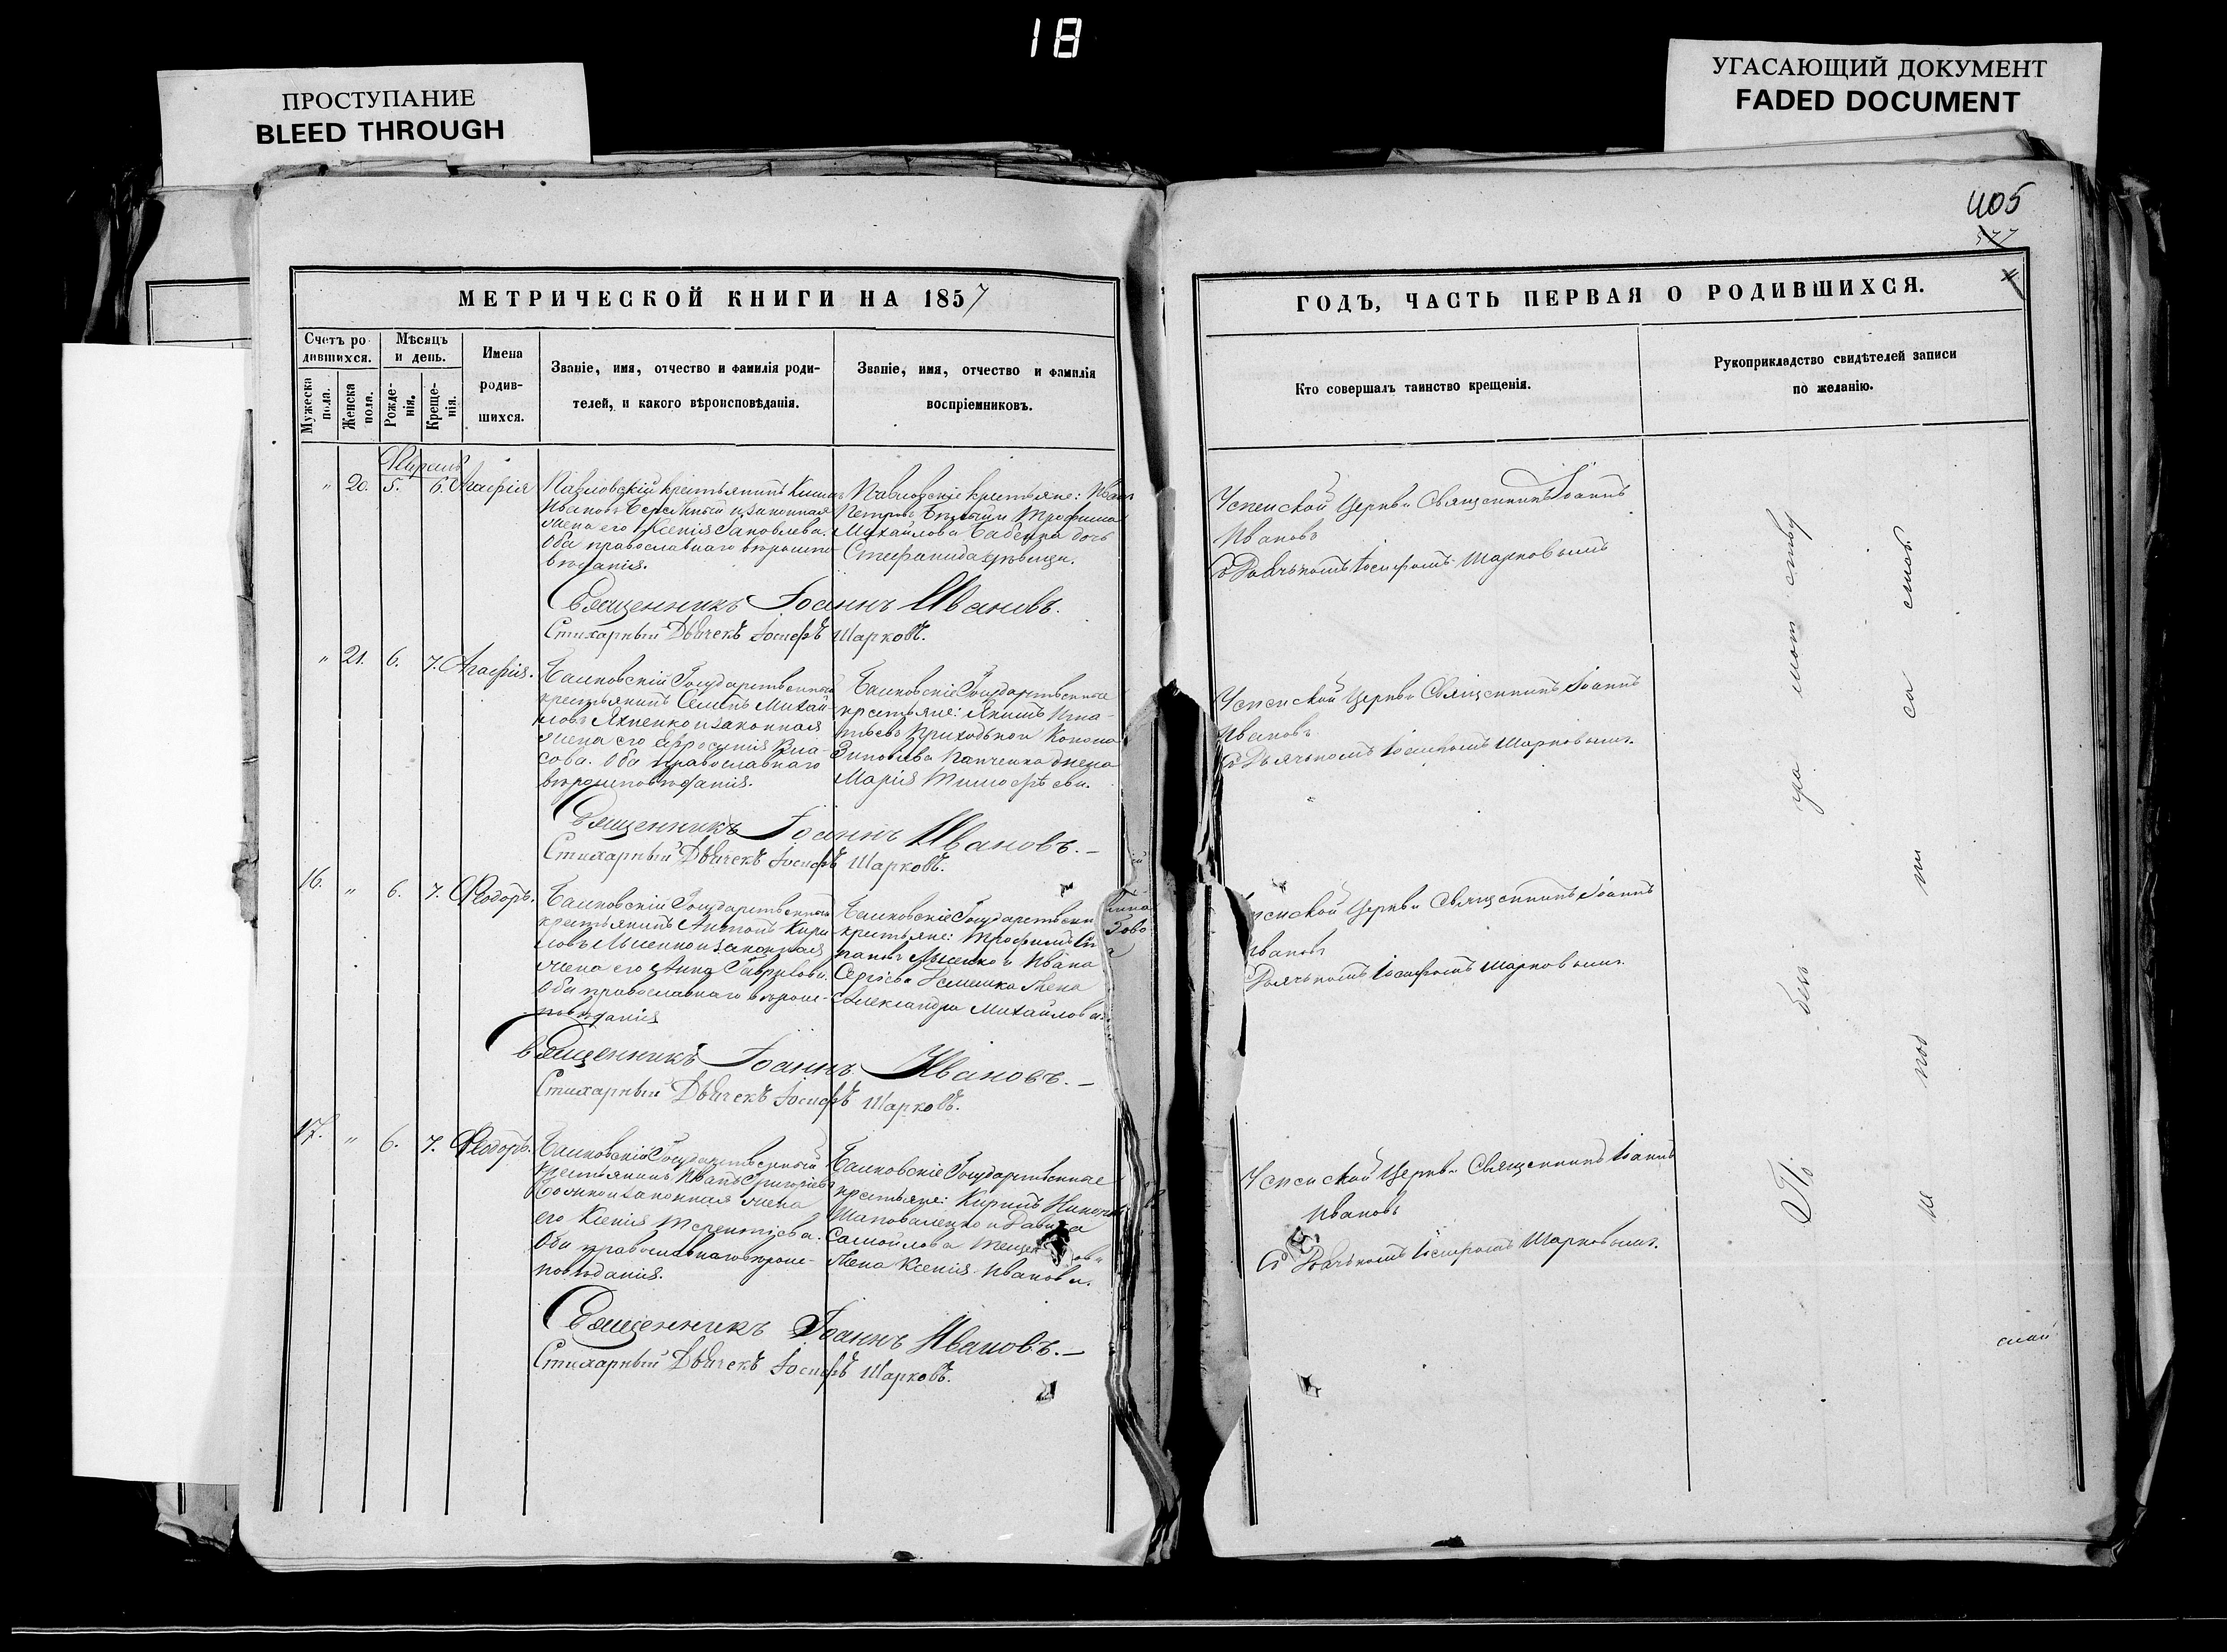 18
ПРОСТУПАНИЕ
BLEED THROUGH
УГАСАЮЩИЙ ДОКУМЕНТ
FADED DOCUMENT
405
577
МЕТРИЧЕСКОЙ КНИГИ НА 1857
Счетъ ро
дившихся.
Мужеска
пола.
Женска
пола.
Мѣсяцъ
и день.
Рожде-
нія.
Креще-
нія.
Имена
родив-
шихся.
Званіе, имя, отчество и фамилія роди-
телей, и какого вѣроисповѣданія.
Званіе, имя, отчество и фамилія
воспріемниковъ.
" 20. 5. 6. Агафія
Павловскій крестьянинъ
Ивановъ и законная
жена его Ксенія Яковлева.
Оба православнаго вѣроиспо
вѣданія.
Павловскіе крестьяне: Иванъ
Петровъ и Трофима
Михайлова Бабенка дочь
Стефанида дѣвица.
Священникъ Іоаннъ Ивановъ.
Стихарный Дьячекъ Іосифъ Шарковъ.
" 21. 6. 7. Агафія.
Государственный
крестьянинъ Семенъ Михай-
ловъ Яхненко и законная
жена его Ефросинія Вла-
сова. Оба православнаго
вѣроисповѣданія.
Государственные
крестьяне: Якимъ Игна-
тьевъ Приходько и Конона
Зиновьева Панченка жена
Марія Тимофѣева.
Священникъ Іоаннъ Ивановъ.—
Стихарный Дьячекъ Іосифъ Шарковъ.
16. " 6. 7. Ѳеодоръ.
Государственный
крестьянинъ Антонъ Кири
ловъ и законная
жена его Анна Гаврилова.
Оба православнаго вѣроис-
повѣданія
крестьяне: Трофимъ
Лысенко и Ивана
Сергѣева жена
Александра Михайлова.
Священникъ Іоаннъ Ивановъ.—
Стихарный Дьячекъ Іосифъ Шарковъ.
17. " 6. 7. Ѳеодоръ.
Государственный
крестьянинъ Иванъ Григорьевъ
и законная жена
его Ксенія Терентіева.
Оба православнаго вѣроис-
повѣданія.
Государственные
крестьяне: Кирилъ
Шаповаленко и Давида
Самойлова
жена Ксенія Иванова.
Священникъ Іоаннъ Ивановъ.—
Стихарный Дьячекъ Іосифъ Шарковъ.
ГОДЪ, ЧАСТЬ ПЕРВАЯ О РОДИВШИХСЯ.
Кто совершалъ таинство крещенія.
Рукоприкладство свидѣтелей записи
по желанію.
Успенской Церкви Священникъ Іоаннъ
Ивановъ
съ Дьячкомъ Іосифомъ Шарковымъ
Успенской Церкви Священникъ Іоаннъ
Ивановъ
съ Дьячкомъ Іосифомъ Шарковымъ.
Церкви Священникъ Іоаннъ
Ивановъ
Дьячкомъ Іосифомъ Шарковымъ.
Успенской Церкви Священникъ Іоаннъ
Ивановъ
съ Дьячкомъ Іосифомъ Шарковымъ.
По без гра мот ству
не под пи са